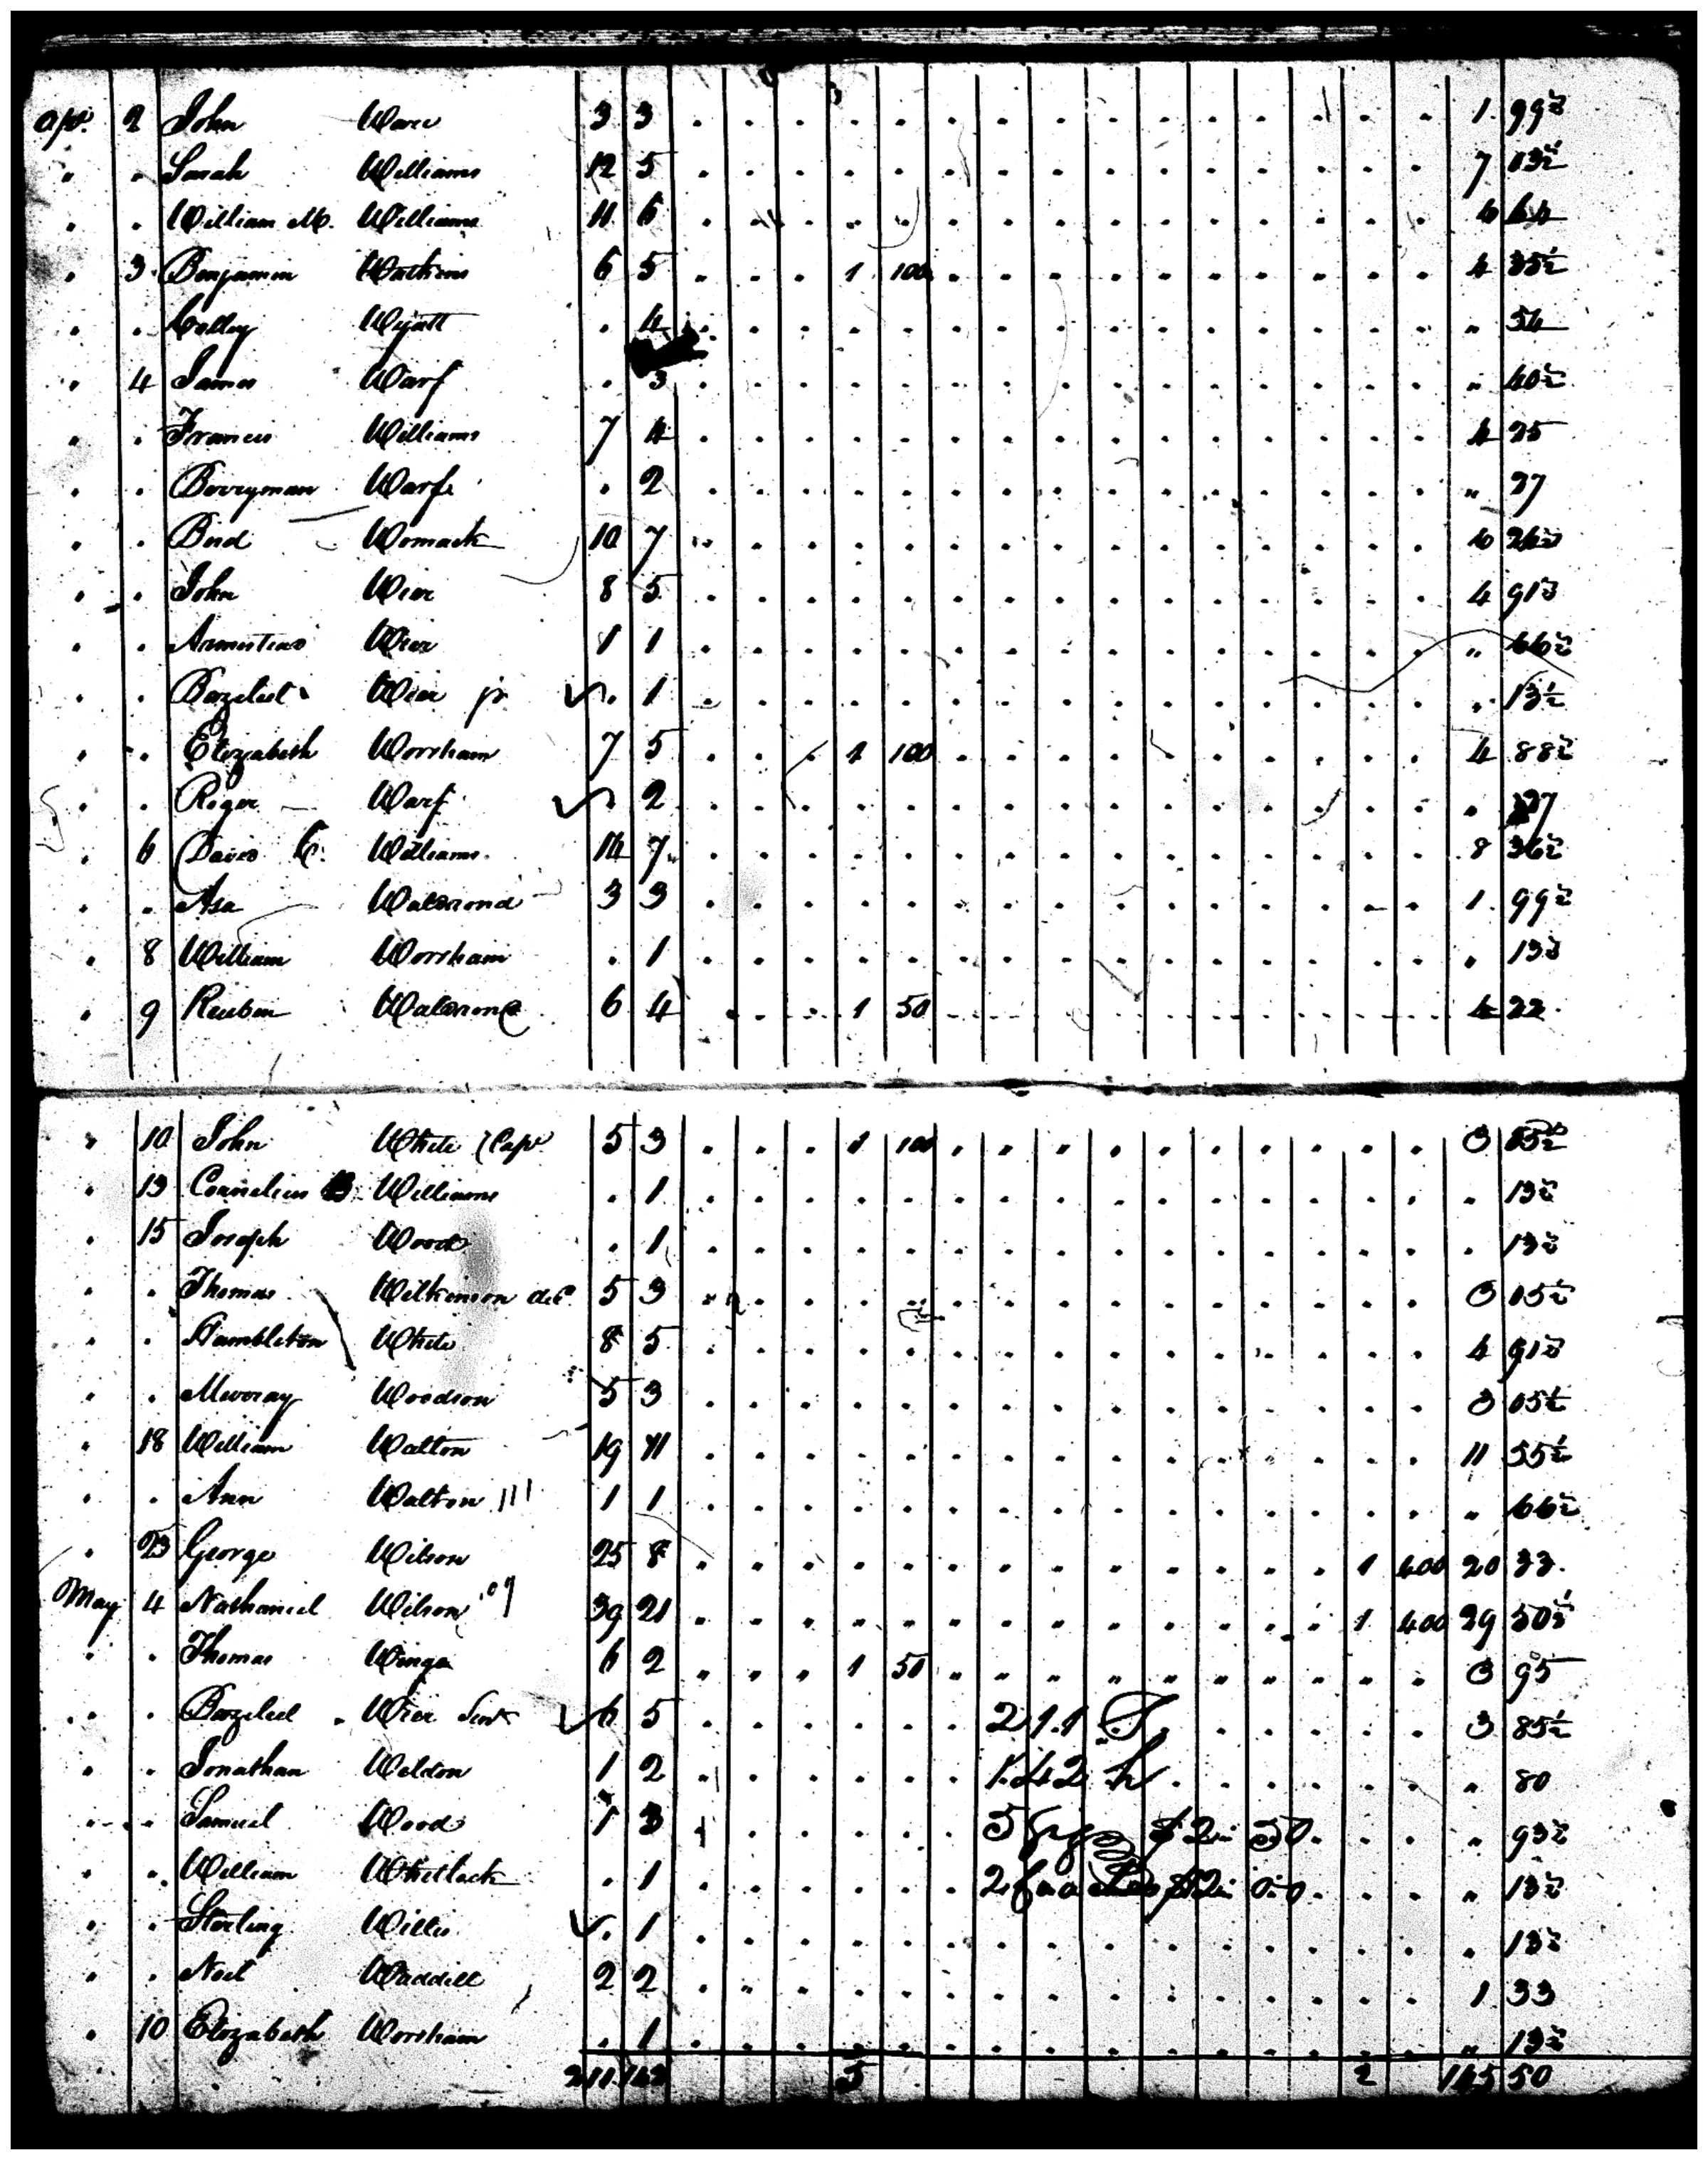 Apr. 2 John Ware 3 3 1. 99½
" . Sarah Williams 12 5 7 03½
" . William M. Williams 11 6 6 64
" 3 Benjamin Watkins 6 5 1 100 4 35½
" . Wyatt . 4 " 54
" 4 James Warf . 3 " 40½
" . Francis Williams 7 4 4 25
" . Berryman Warf . 2 " 27
" . Bird Womack 10 7 6 24½
" . John Wier 8 5 4 91½
" . Armistead Wier 1 1 " 66½
" . Bazeleel Wier jr . 1 " 13½
" . Elizabeth Worsham 7 5 1 100 4 88½
" . Roger Warf . 2 " 27
" 6 David C. Williams 14 7 8 36½
" . Asa Waldrond 3 3 1. 99½
" 8 William Worsham . 1 " 13½
" 9 Reuben Waldrond 6 4 1 50 4 22
" 10 John White (Capt 5 3 1 100 3 55½
" 13 Cornelius B Williams . 1 " 13½
" 15 Joseph Wood . 1 . 13½
" . Thomas Wilkinson decd 5 3 3 05½
" . Hambleton White 8 5 4 91½
" . Murray Woodson 5 3 3 05½
" 18 William Walton 19 11 11 55½
" . Ann Walton 1 1 " 66½
" 23 George Wilson 25 8 1 400 20 33
May 4 Nathaniel Wilson 39 21 1 400 29 50½
" . Thomas Winga 6 2 1 50 3 95
" . Bazeleel Wier Senr 6 5 2 11 3 85½
" . Jonathan Weldon 1 2 142 " 80
" . Samuel Wood 1 3 5 $2 50 " 93½
" . William Whitlock . 1 2 $2 00 " 13½
" . Sterling Willis . 1 " 13½
" . Noel Waddill 2 2 1 33
" 10 Elizabeth Worsham . 1 " 13½
211 142 5 2 145 50